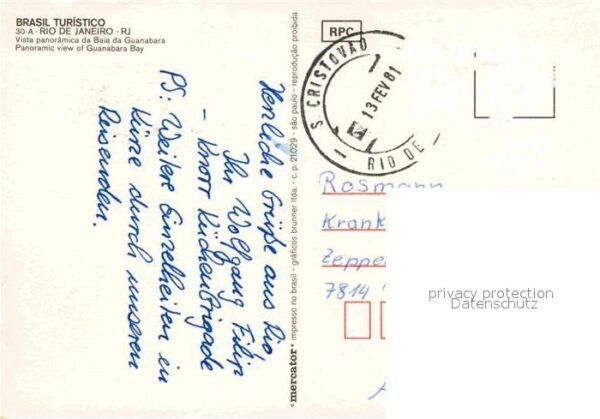 BRASIL TURÍSTICO
30-A - RIO DE JANEIRO - RJ
Vista panorâmica da Baia da Guanabara
Panoramic view of Guanabara Bay
Herzliche Grüße aus Rio,
Ihr Wolfgang Filip
- Knorr Küchenbrigade
PS: Weitere Einzelheiten in
Kürze durch unseren
Reisenden.
®mercator® impresso no brasil - gráficos brunner ltda. - c.p. 21029 - são paulo - reprodução proibida
RPC
S. CRISTOVÃO
13 FEV 81
RIO DE
Rosmann
Krank
Zeppe
7814
privacy protection
Datenschutz